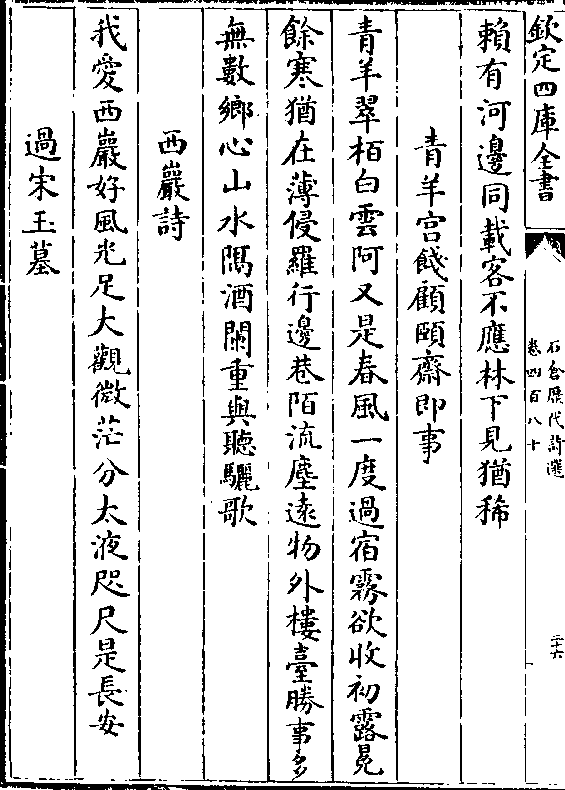 欽定四庫全書
石倉歷代詩選
卷四百八十
二十六
賴有河邊同載客不應林下見猶稀
青羊宫餞顧頤齋即事
青羊翠栢白雲阿又是春風一度過宿霧欲收初露冕
餘寒猶在薄侵羅行邊巷陌流塵遠物外樓臺勝事多
無數鄉心山水隅酒闌重與聽驪歌
西巖詩
我愛西巖好風光足大觀微茫分太液咫尺是長安
過宋玉墓